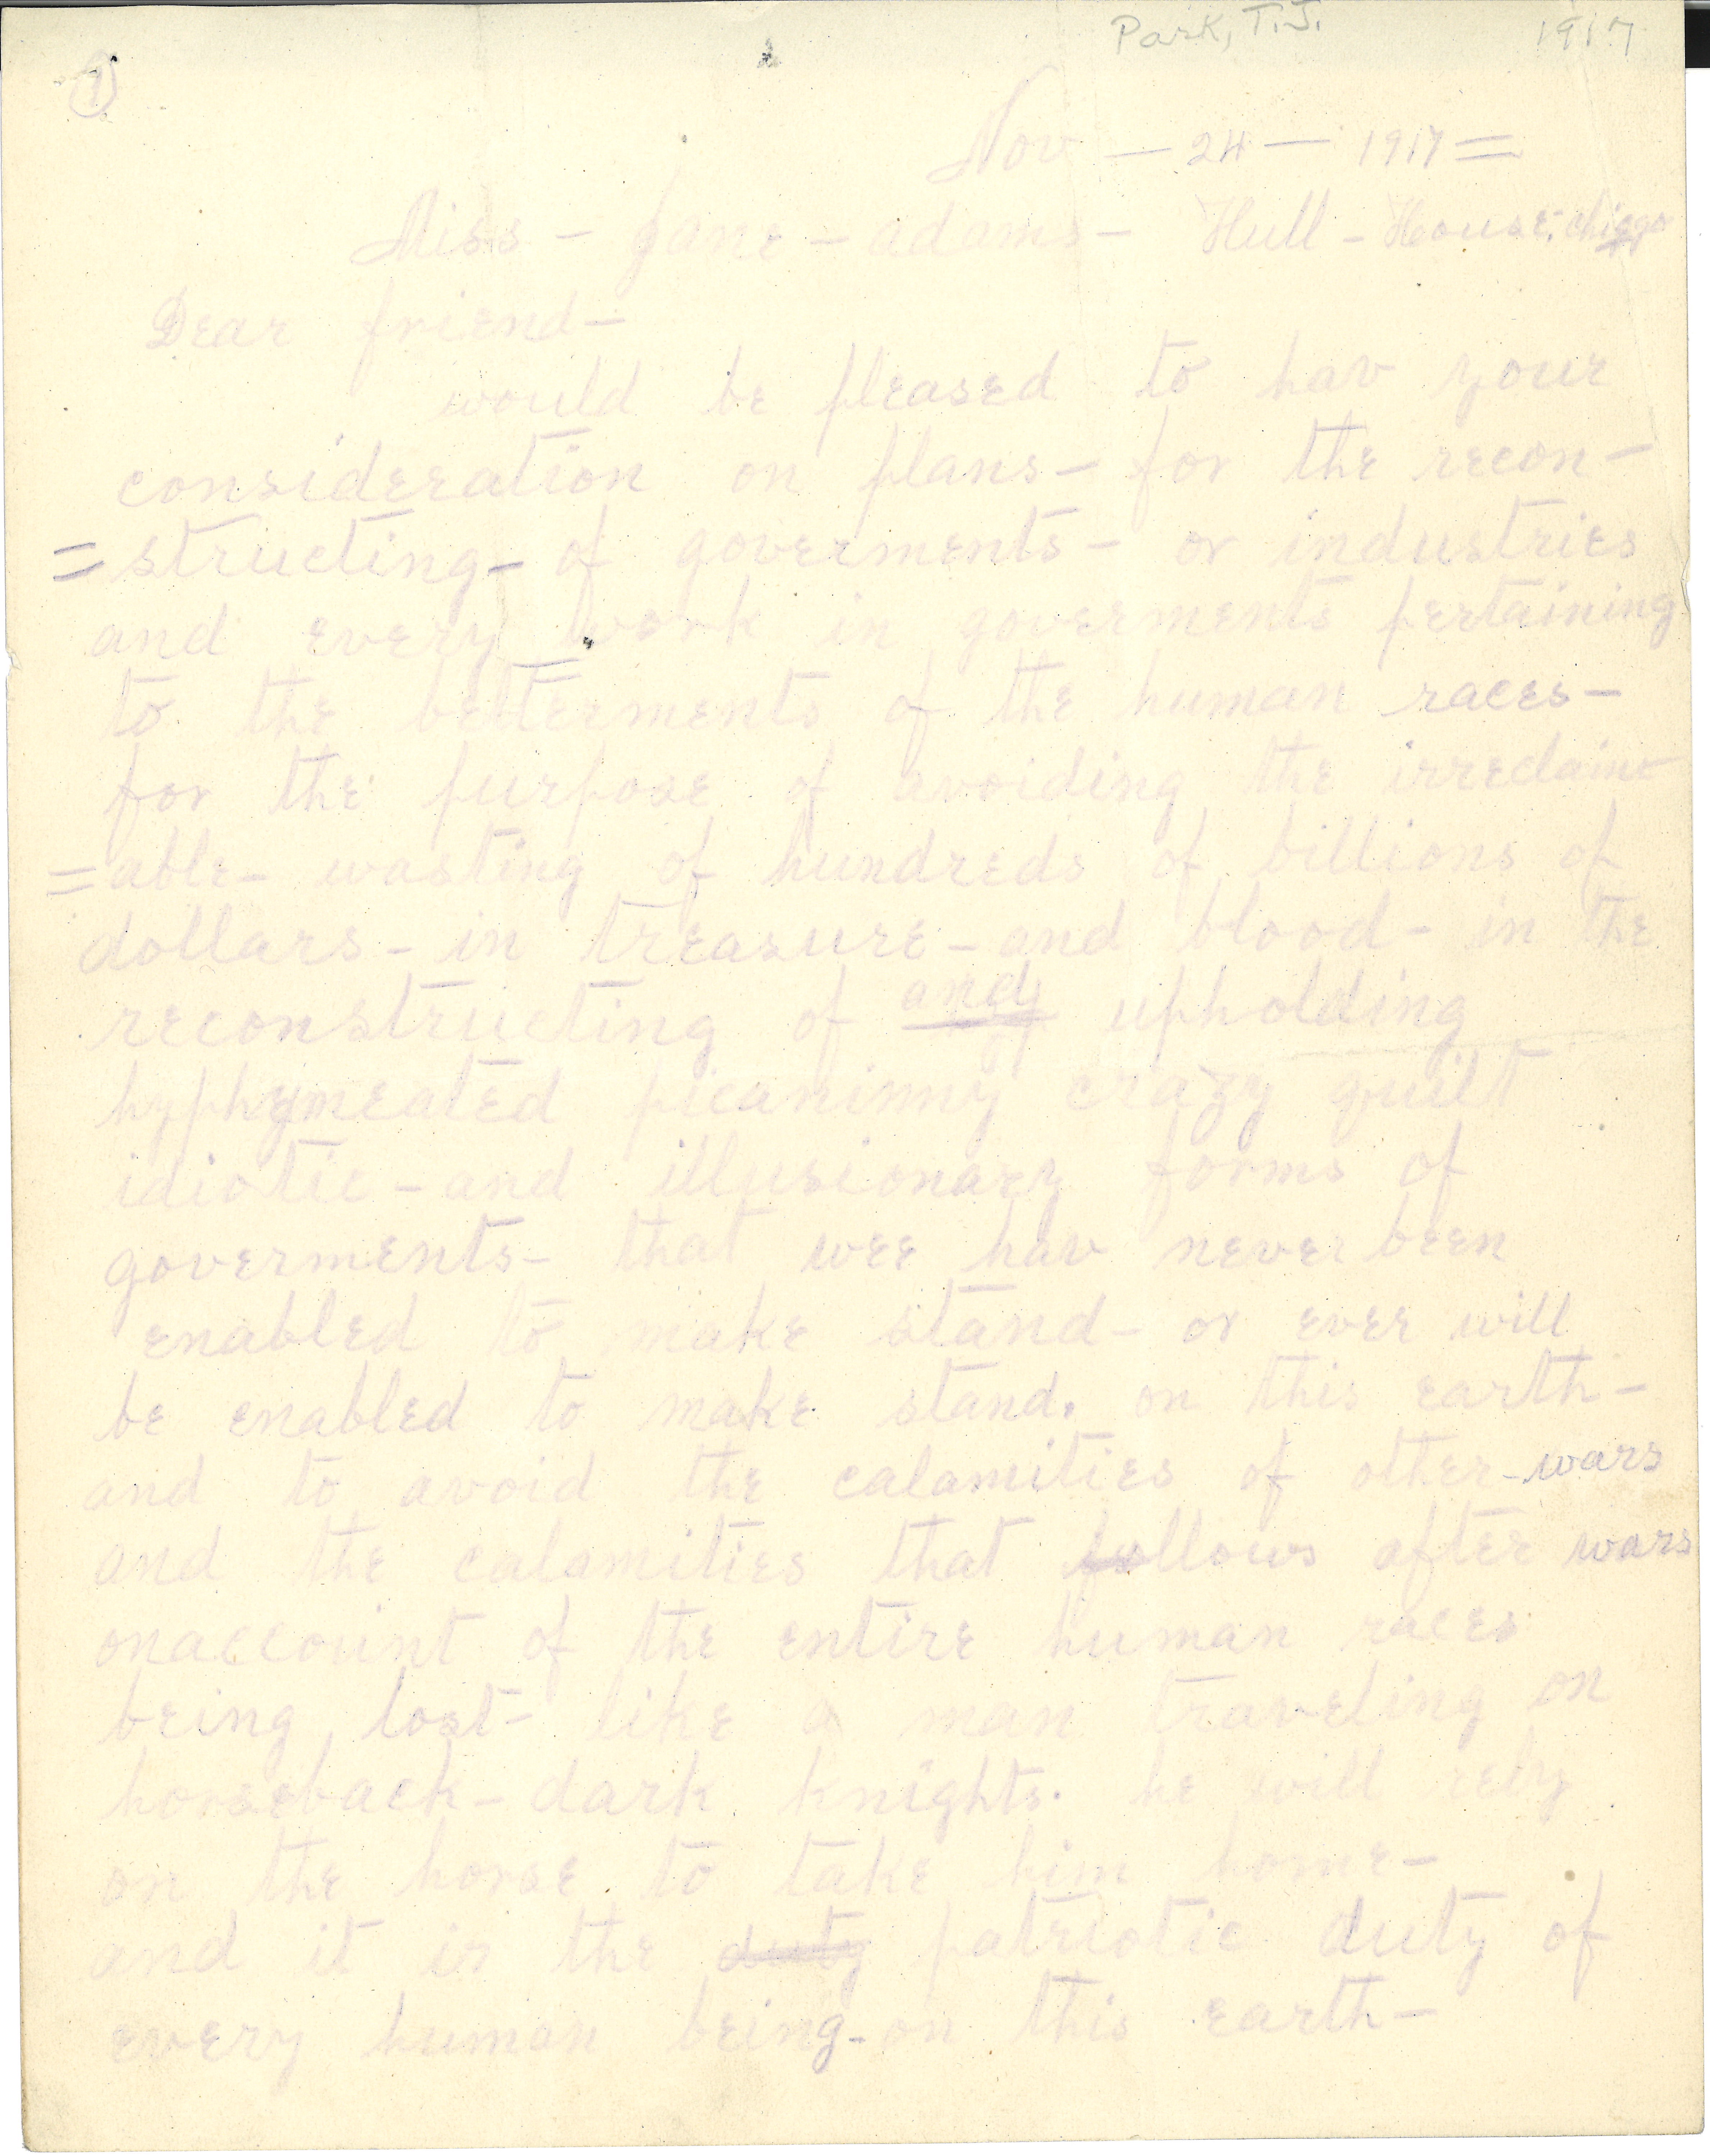 Park, T.J. 1917
1
Nov — 24 — 1917 =
Miss - Jane - adams - Hull - House,
Dear friend -
would be pleased to hav your
consideration on plans - for the recon -
= structing - of goverments - or industries
and every work in goverments pertaining
to the betterments of the human races -
for the purpose of avoiding the irreclaim -
= able - wasting of hundreds of billions of
dollars - in treasure - and blood - in the
reconstructing of and upholding
hyphymeated picaninny crazy quilt
idiotic - and illusionary forms of
goverments - that wee hav never been
enabled to make stand - or ever will
be enabled to make stand. on this earth -
and to avoid the calamities of other - wars
and the calamities that follows after wars
onaccount of the entire human races
being lost - like a man traveling on
horseback - dark knights. he will rely
on the horse to take him home -
and it is the duty patriotic duty of
every human being - on this earth -